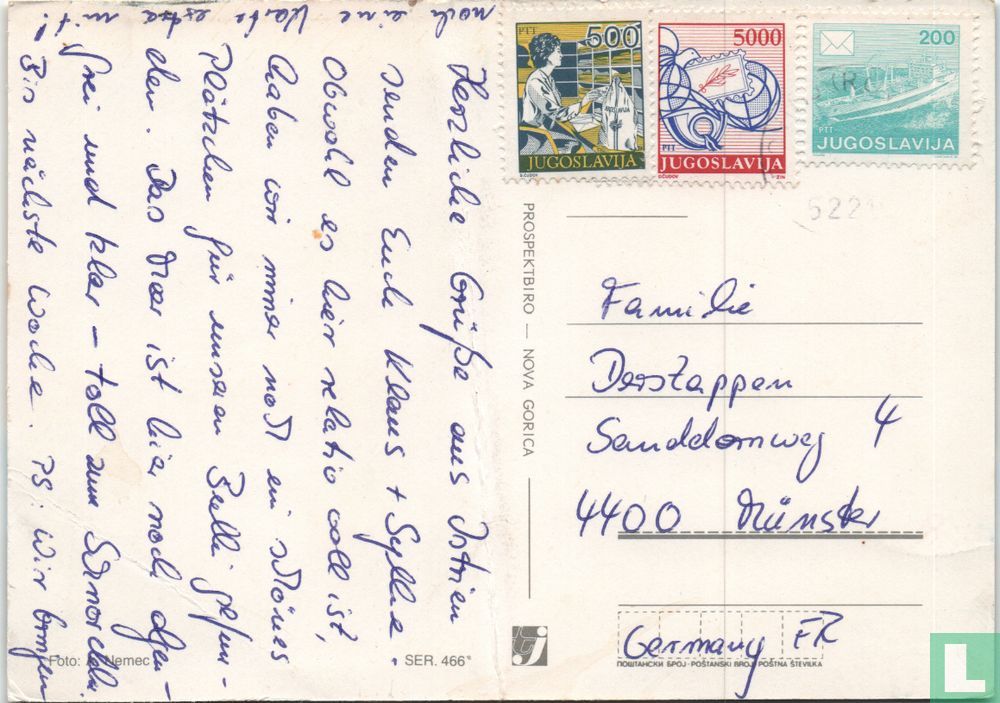 Herzliche Grüße aus Istrien
senden Euch Klaus + Sylke.
Obwohl es hier relativ voll ist,
haben wir immer noch ein schönes
Plätzchen für unseren Bulli gefun-
den. Das Meer ist hier noch algen-
frei und klar – toll zum Schnorcheln.
Bis nächste Woche. PS: Wir bringen
noch eine Karte extra mit!
PTT 500
JUGOSLAVIJA
D.ČUDOV
5000
PTT
JUGOSLAVIJA
D.ČUDOV ZIN
200
PTT
JUGOSLAVIJA
522
PROSPEKTBIRO — NOVA GORICA
Familie
Derstappen
Sanddornweg 4
4400 Münster
Germany FR
ПОШТАНСКИ БРОЈ · POŠTANSKI BROJ · POŠTNA ŠTEVILKA
Foto: A. Nemec
SER. 466
tj
L